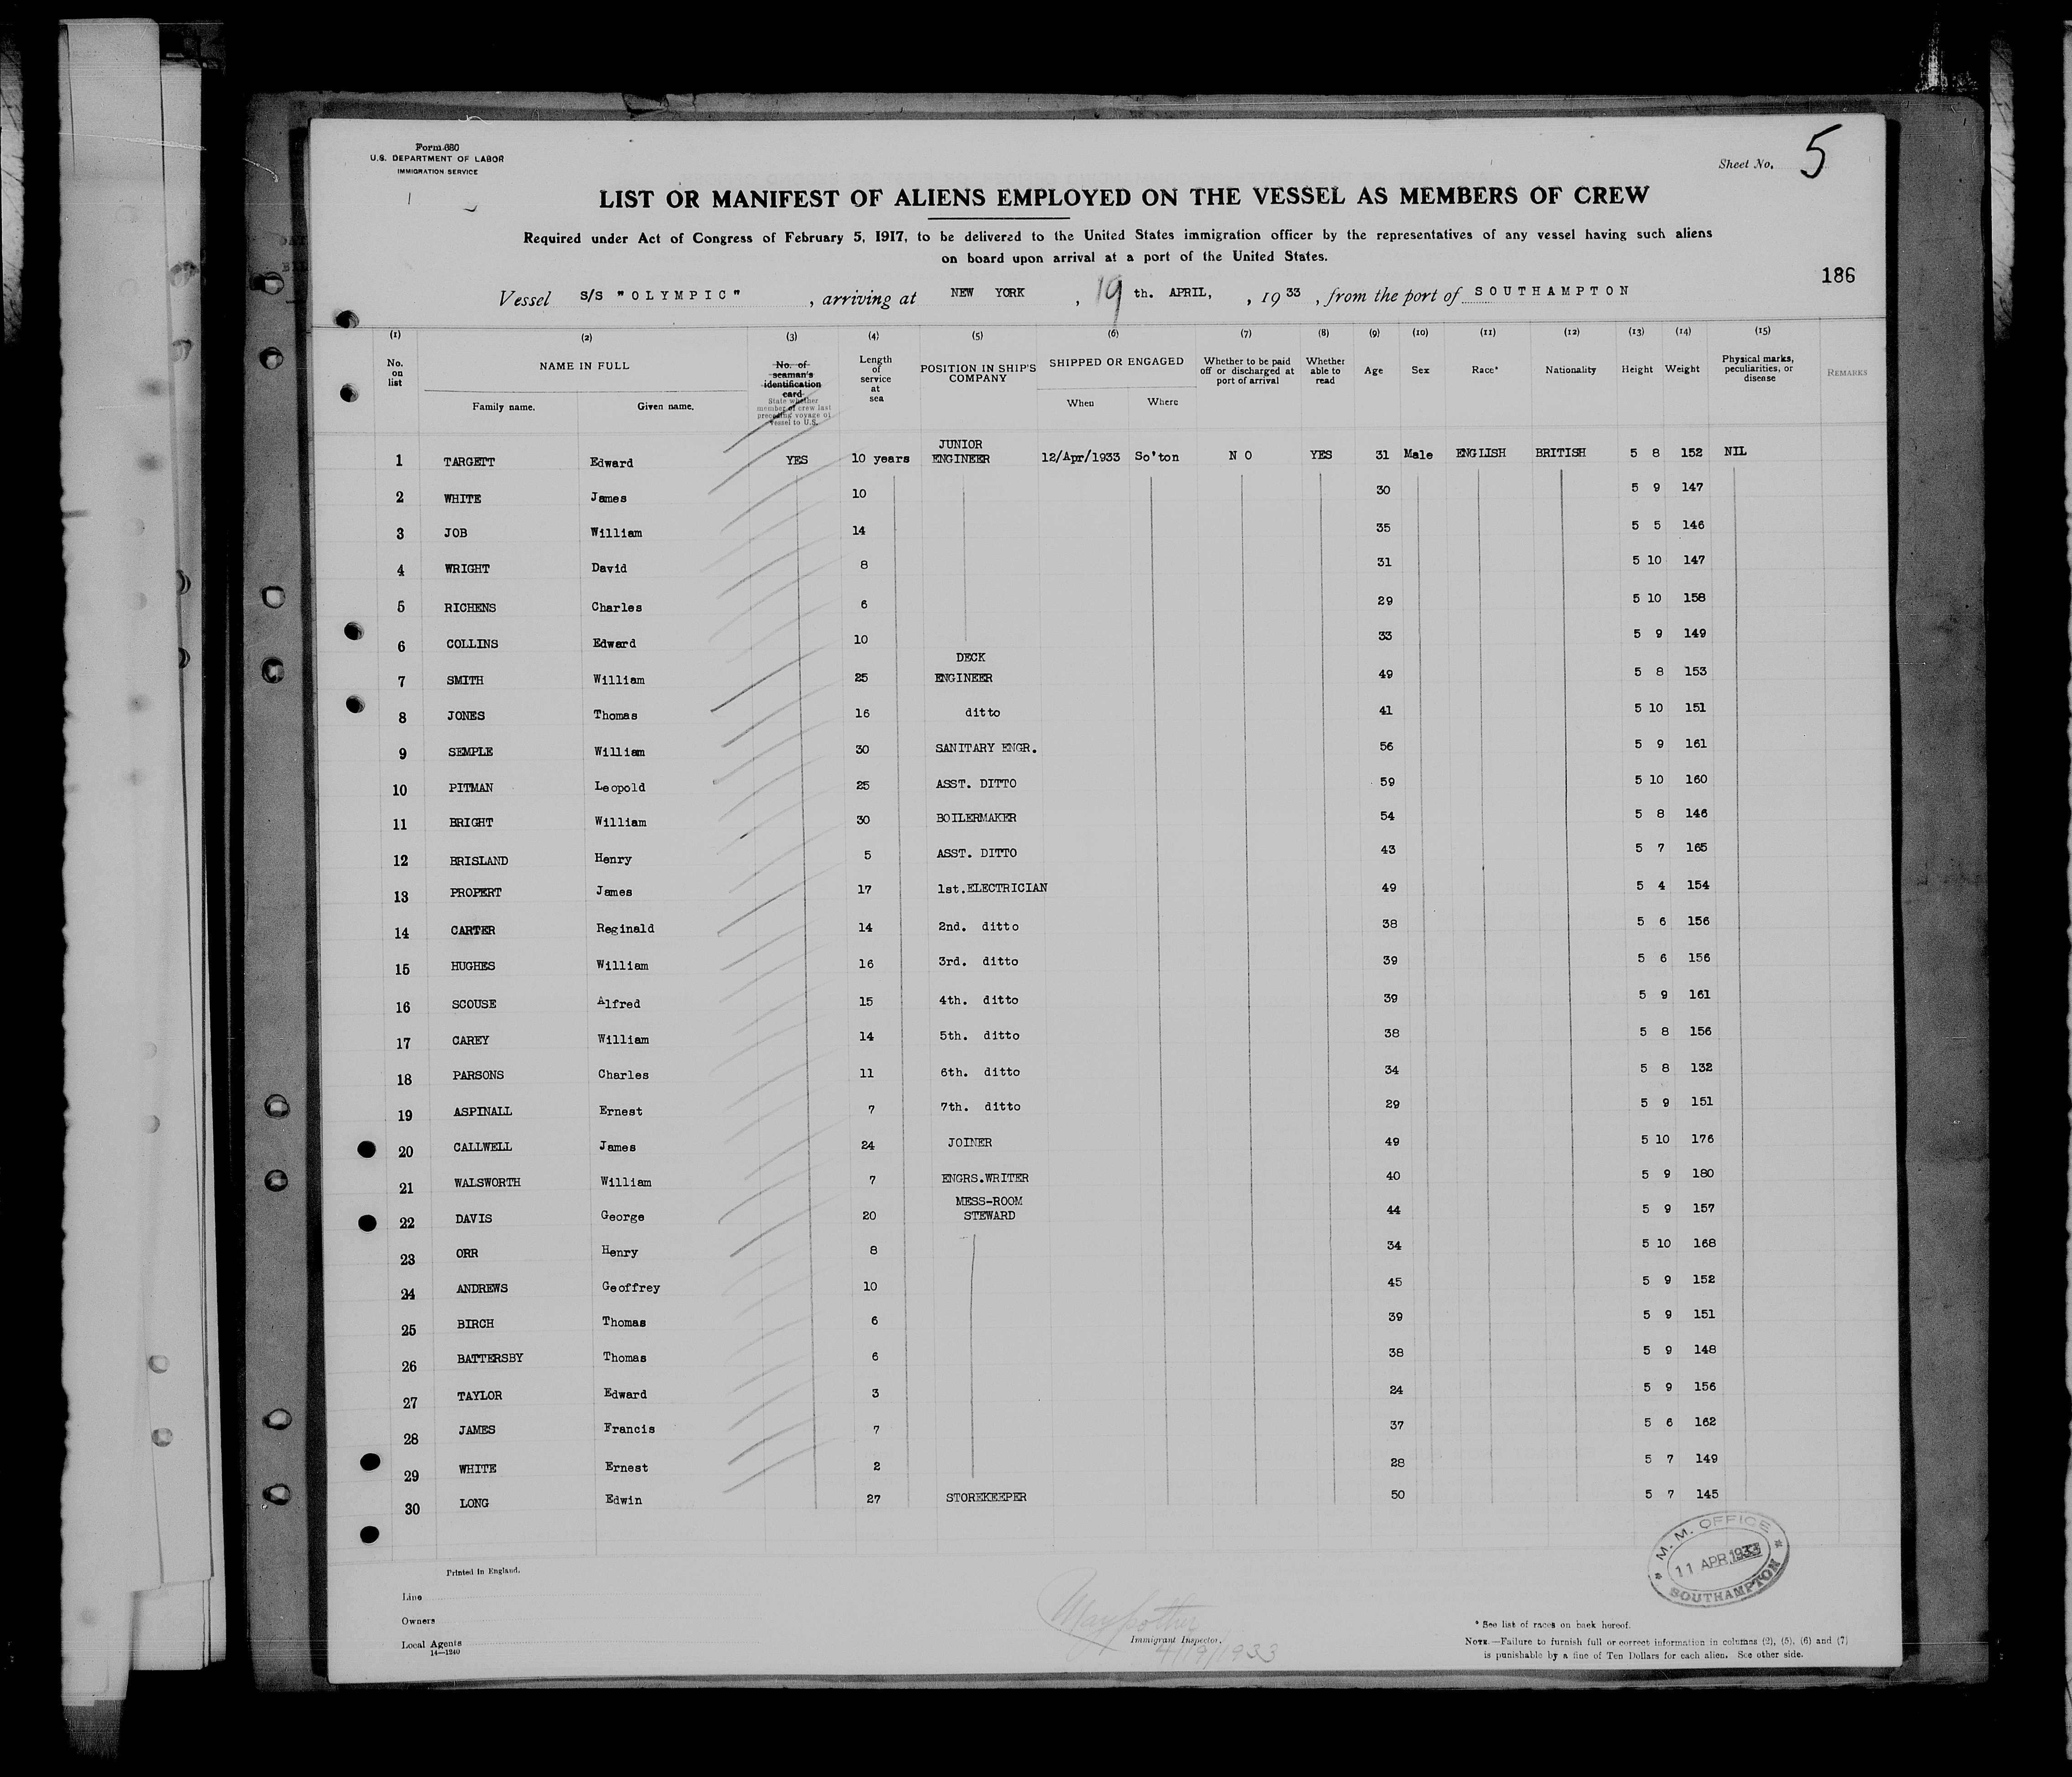 Form 680
U.S. DEPARTMENT OF LABOR
IMMIGRATION SERVICE
Sheet No. 5
LIST OR MANIFEST OF ALIENS EMPLOYED ON THE VESSEL AS MEMBERS OF CREW
Required under Act of Congress of February 5, 1917, to be delivered to the United States immigration officer by the representatives of any vessel having such aliens
on board upon arrival at a port of the United States.
186
Vessel S/S "OLYMPIC", arriving at NEW YORK, 19 th. APRIL, , 1933, from the port of SOUTHAMPTON
(1) (2) (3) (4) (5) (6) (7) (8) (9) (10) (11) (12) (13) (14) (15)
No. on list
NAME IN FULL
Family name. Given name.
No. of seaman's identification card
State whether member of crew last preceding voyage of vessel to U.S.
Length of service at sea
POSITION IN SHIP'S COMPANY
SHIPPED OR ENGAGED
When Where
Whether to be paid off or discharged at port of arrival
Whether able to read
Age
Sex
Race*
Nationality
Height
Weight
Physical marks, peculiarities, or disease
REMARKS
1 TARGETT Edward YES 10 years JUNIOR ENGINEER 12/Apr/1933 So'ton NO YES 31 Male ENGLISH BRITISH 5 8 152 NIL
2 WHITE James 10 30 5 9 147
3 JOB William 14 35 5 5 146
4 WRIGHT David 8 31 5 10 147
5 RICHENS Charles 6 29 5 10 158
6 COLLINS Edward 10 33 5 9 149
7 SMITH William 25 DECK ENGINEER 49 5 8 153
8 JONES Thomas 16 ditto 41 5 10 151
9 SEMPLE William 30 SANITARY ENGR. 56 5 9 161
10 PITMAN Leopold 25 ASST. DITTO 59 5 10 160
11 BRIGHT William 30 BOILERMAKER 54 5 8 146
12 BRISLAND Henry 5 ASST. DITTO 43 5 7 165
13 PROPERT James 17 1st.ELECTRICIAN 49 5 4 154
14 CARTER Reginald 14 2nd. ditto 38 5 6 156
15 HUGHES William 16 3rd. ditto 39 5 6 156
16 SCOUSE Alfred 15 4th. ditto 39 5 9 161
17 CAREY William 14 5th. ditto 38 5 8 156
18 PARSONS Charles 11 6th. ditto 34 5 8 132
19 ASPINALL Ernest 7 7th. ditto 29 5 9 151
20 CALLWELL James 24 JOINER 49 5 10 176
21 WALSWORTH William 7 ENGRS.WRITER 40 5 9 180
22 DAVIS George 20 MESS-ROOM STEWARD 44 5 9 157
23 ORR Henry 8 34 5 10 168
24 ANDREWS Geoffrey 10 45 5 9 152
25 BIRCH Thomas 6 39 5 9 151
26 BATTERSBY Thomas 6 38 5 9 148
27 TAYLOR Edward 3 24 5 9 156
28 JAMES Francis 7 37 5 6 162
29 WHITE Ernest 2 28 5 7 149
30 LONG Edwin 27 STOREKEEPER 50 5 7 145
M. M. OFFICE
11 APR 1933
SOUTHAMPTON
Printed in England.
Line
Owners
Local Agents
14—1240
Immigrant Inspector.
4/19/1933
* See list of races on back hereof.
NOTE.—Failure to furnish full or correct information in columns (2), (5), (6) and (7)
is punishable by a fine of Ten Dollars for each alien. See other side.